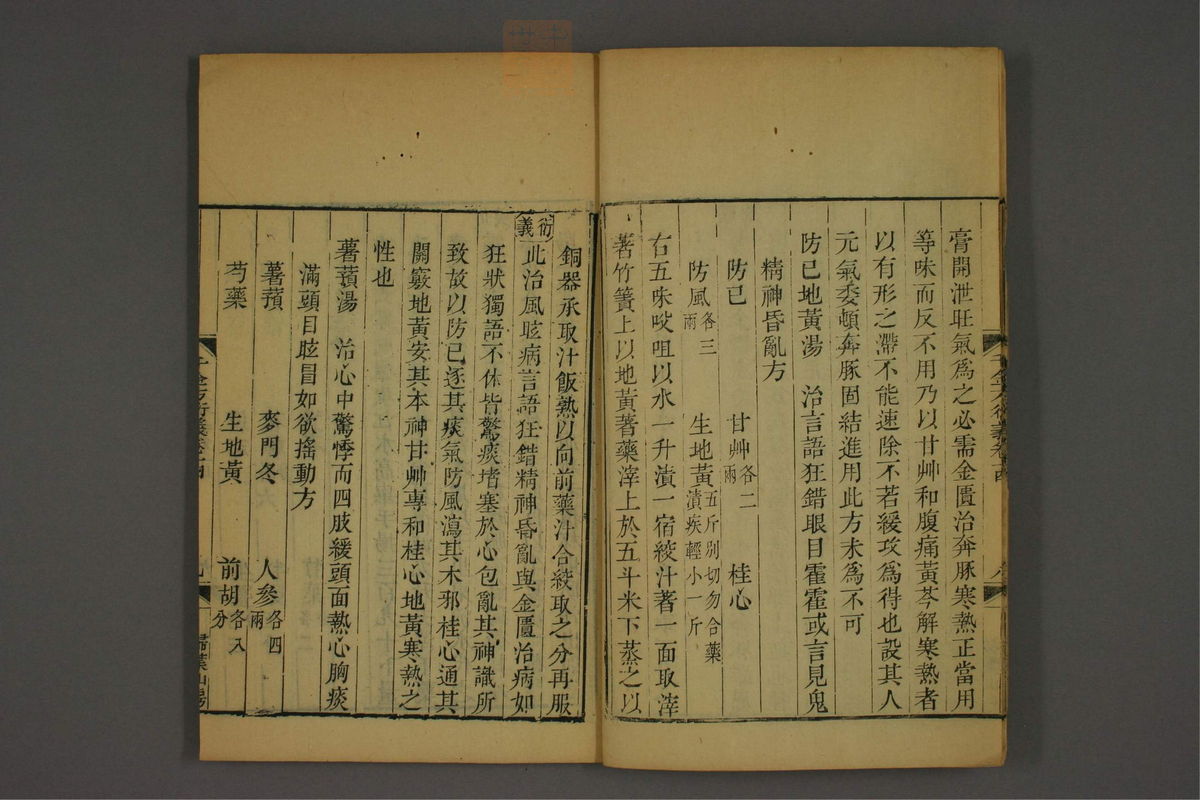 膏開泄旺氣爲之必需金匱治奔豚寒熱正當用
等味而反不用乃以甘艸和腹痛黃芩解寒熱者
以有形之滯不能速除不若緩攻爲得也設其人
元氣委頓奔豚固結進用此方未爲不可
防已地黃湯　治言語狂錯眼目霍霍或言見鬼
精神昏亂方
防已　甘艸各二兩　桂心
防風各三兩　生地黃五斤別切勿合藥漬疾輕小一斤
右五味㕮咀以水一升漬一宿絞汁著一面取滓
著竹簀上以地黃著藥滓上於五斗米下蒸之以
銅器承取汁飯熟以向前藥汁合絞取之分再服
衍義此治風眩病言語狂錯精神昏亂與金匱治病如
狂狀獨語不休皆驚痰堵塞於心包亂其神識所
致故以防已逐其痰氣防風瀉其木邪桂心通其
關竅地黃安其本神甘艸專和桂心地黃寒熱之
性也
薯蕷湯　治心中驚悸而四肢緩頭面熱心胸痰
滿頭目眩冒如欲搖動方
薯蕷　麥門冬　人參各四兩
芍藥　生地黃　前胡各八分
千金方衍義卷十四
掃葉山房